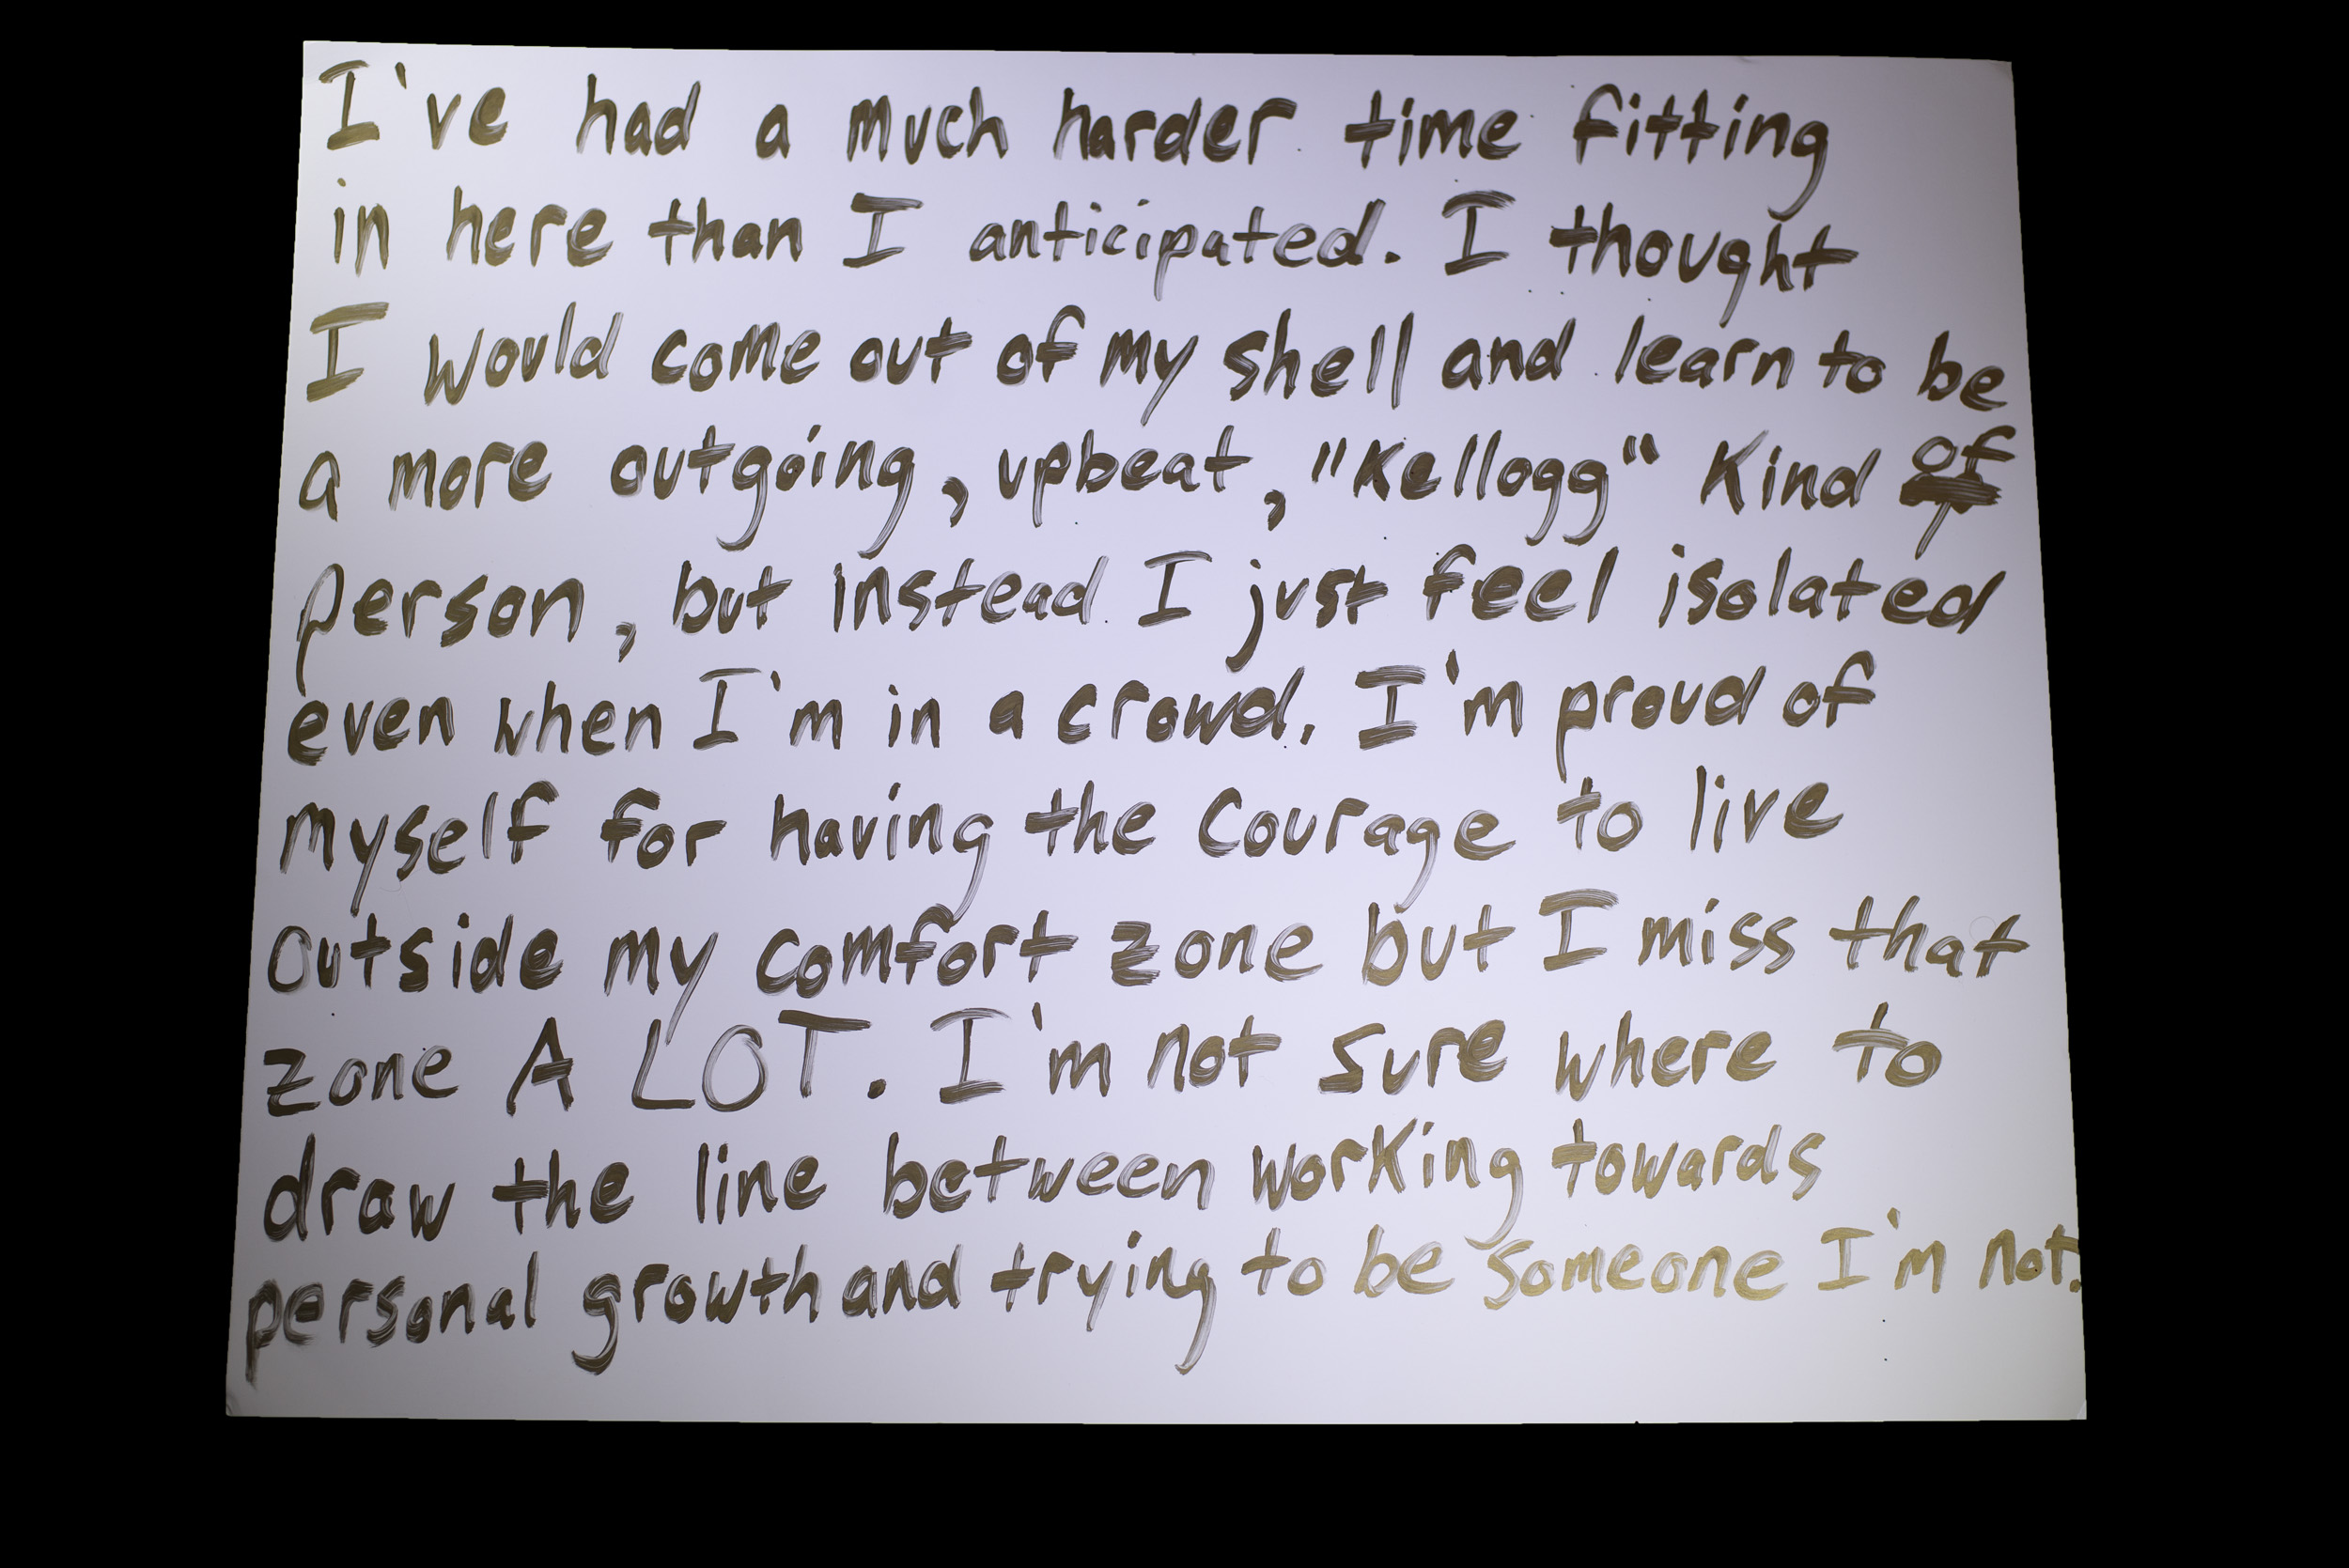 I've had a much harder time fitting
in here than I anticipated. I thought
I would come out of my shell and learn to be
a more outgoing, upbeat, "Kellogg" kind of
person, but instead I just feel isolated
even when I'm in a crowd. I'm proud of
myself for having the courage to live
outside my comfort zone but I miss that
zone A LOT. I'm not sure where to
draw the line between working towards
personal growth and trying to be someone I'm not.